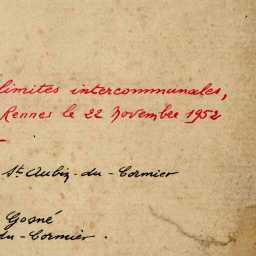 limites intercommunales,
Rennes le 22 Novembre 1952
St Aubin-du-Cormier
Gosné
du-Cormier.